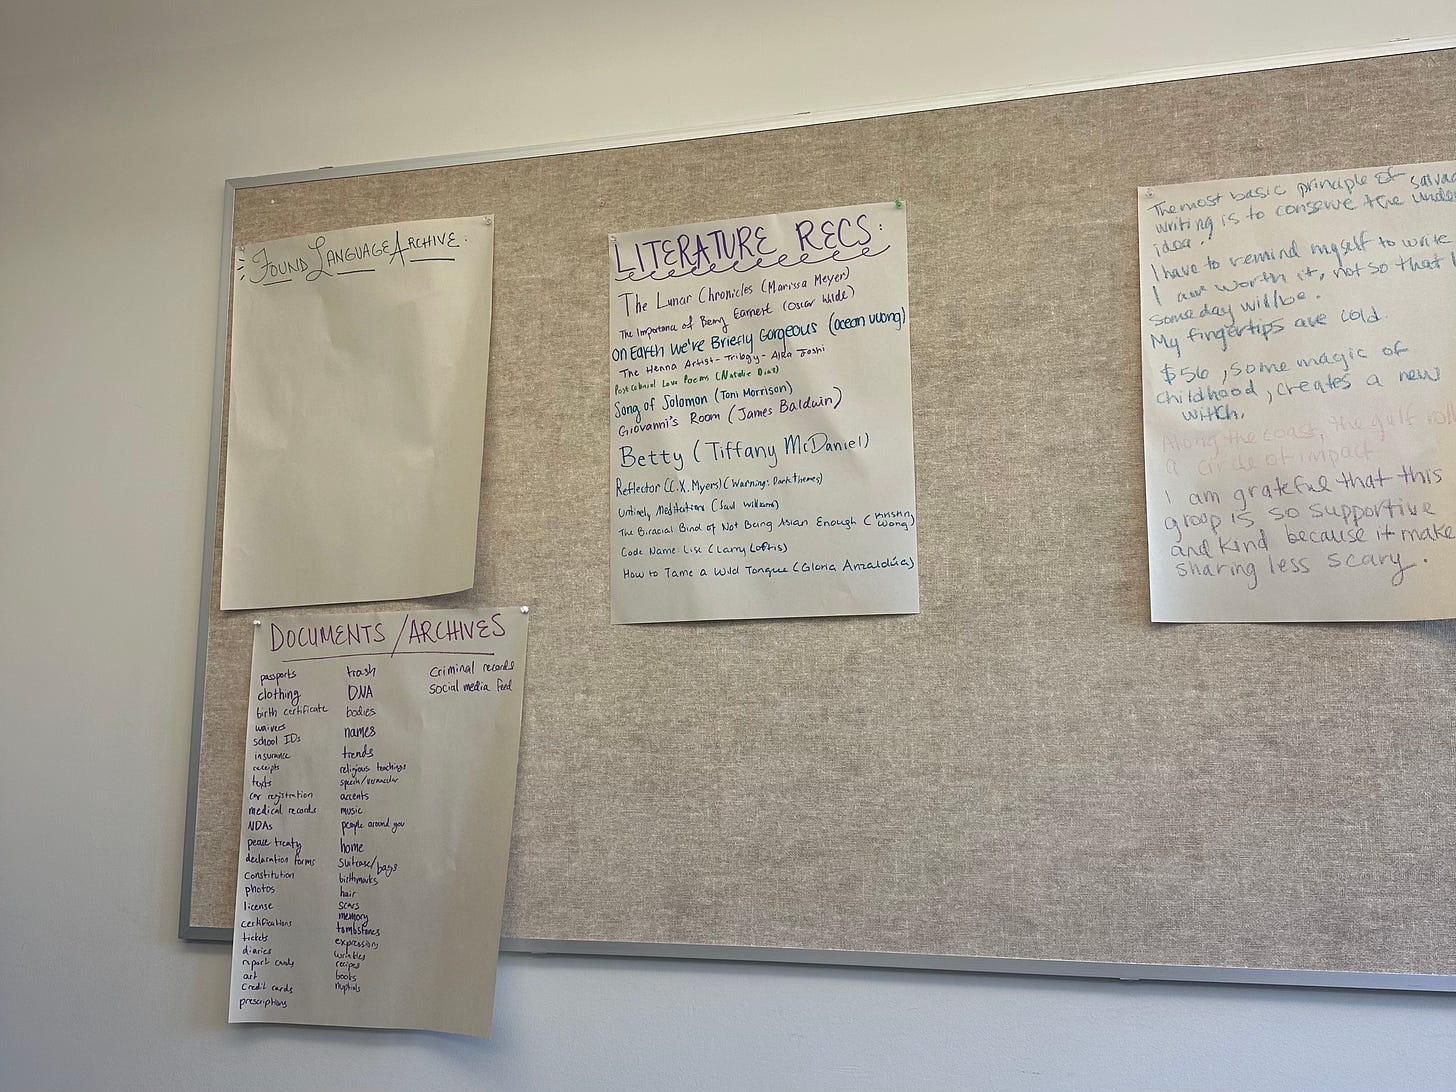 FOUND LANGUAGE ARCHIVE:
LITERATURE RECS:
The Lunar Chronicles (Marissa Meyer)
The Importance of Being Earnest (Oscar Wilde)
On Earth We're Briefly Gorgeous (ocean vuong)
The Henna Artist - Trilogy - Alka Joshi
Postcolonial Love Poems (Natalie Diaz)
Song of Solomon (Toni Morrison)
Giovanni's Room (James Baldwin)
Betty (Tiffany McDaniel)
Reflector (C.X. Myers) (Warning: Dark themes)
Untimely Meditations (Saul Williams)
The Biracial Bind of Not Being Asian Enough (Kristin Wong)
Code Name: Lise (Larry Loftis)
How to Tame a Wild Tongue (Gloria Anzaldúa)
The most basic principle of
writing is to conserve the
idea.
I have to remind myself to write
I am worth it, not so that I
someday will be.
My fingertips are cold.
$56, some magic of
childhood, creates a new
witch.
Along the coast, the gulf
a circle of impact
I am grateful that this
group is so supportive
and kind because it make
sharing less scary.
DOCUMENTS/ARCHIVES
passports
clothing
birth certificate
waivers
school IDs
insurance
receipts
texts
car registration
medical records
NDAs
peace treaty
declaration forms
Constitution
photos
license
certifications
tickets
diaries
report cards
art
credit cards
prescriptions
trash
DNA
bodies
names
trends
religious teachings
speech/vernacular
accents
music
people around you
home
suitcase/bags
birthmarks
hair
scars
memory
tombstones
expressions
wrinkles
recipes
books
nuptials
Criminal records
social media feed